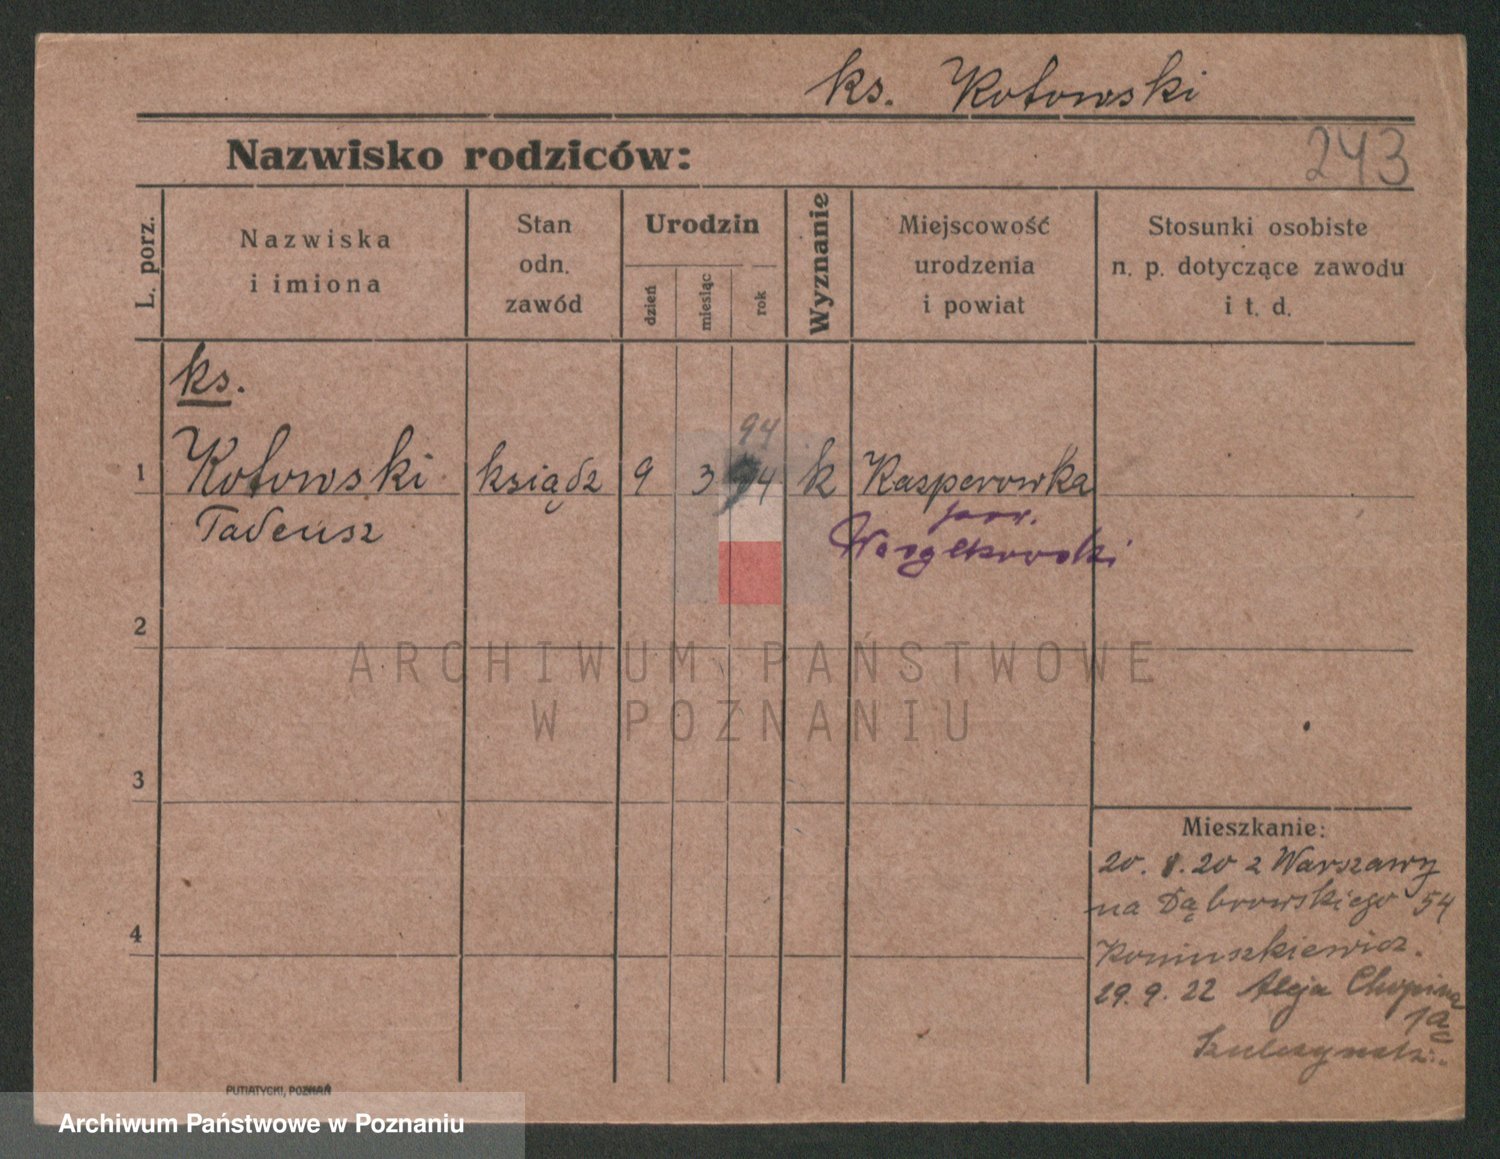 ks. Kotowski
Nazwisko rodziców:
243
L. porz.
Nazwiska
i imiona
Stan
odn.
zawód
Urodzin
dzień
miesiąc
rok
Wyznanie
Miejscowość
urodzenia
i powiat
Stosunki osobiste
n. p. dotyczące zawodu
i t. d.
ks.
94
1 Kotowski ksiądz 9 3 94 k Kasperowka
Tadeusz
pow.
2
ARCHIWUM PAŃSTWOWE
W POZNANIU
3
Mieszkanie:
20. 20 z Warszawy
na Dąbrowskiego 54
4
Koniuszkiewicz.
29. 9. 22 Aleja Chopina
1a
PUTIATYCKI, POZNAŃ
Archiwum Państwowe w Poznaniu